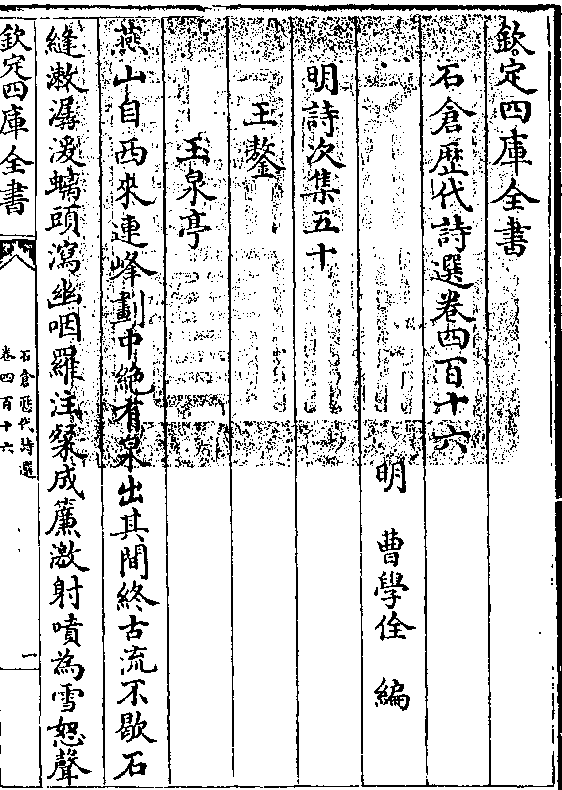 欽定四庫全書
石倉歴代詩選卷四百十六
明 曹學佺 編
明詩次集五十
王鏊
玉泉亭
燕山自西來連峰劃中絶有泉出其間終古流不歇石
縫漱潺湲螭頭瀉幽咽羅注縈成簾激射噴為雪怒聲
欽定四庫全書
石倉歷代詩選
卷四百十六
一